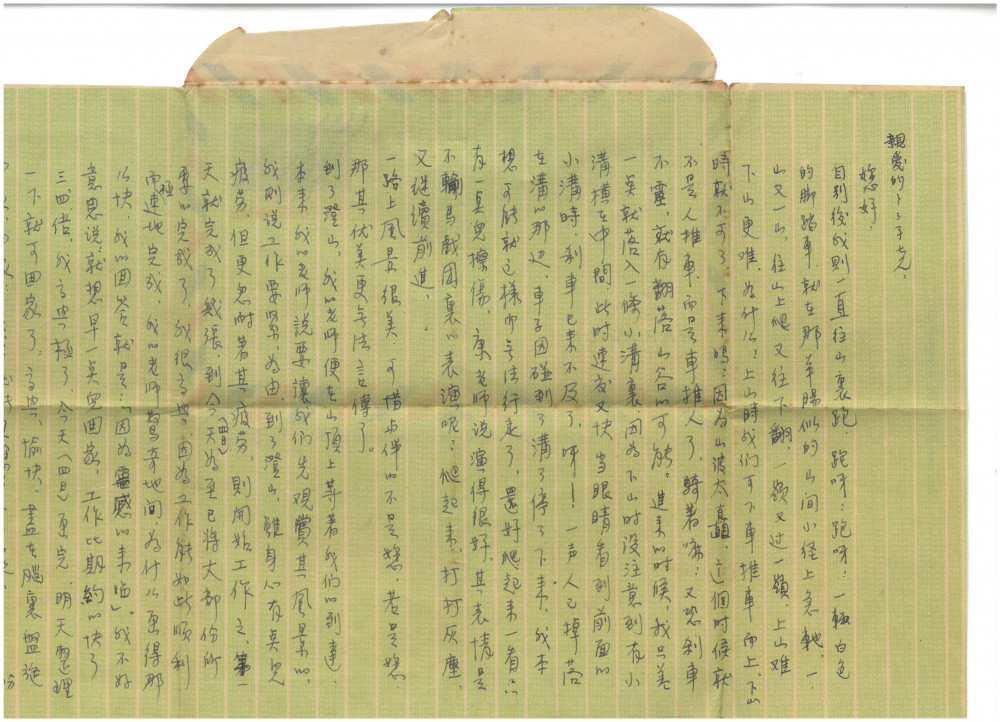 親愛的
您好，
自別後我則一直往山裏跑，跑呀！跑呀！一輛白色
的腳踏車，就在那羊腸似的山間小徑上急馳，一
山又一山，往山上爬又往下翻，一嶺又過一嶺，上山難
下山更難，為什么！上山時我们可下車推車而上，下山
時就不可了，下來嗎！因為山波太直，這個時候就
不是人推車，而是車推人了，騎著嘛！又恐刹車
不靈，就有翻落山谷的可能。進來的時候，我只差
一点就落入一條小溝裏，因為下山時没注意到有小
溝横在中間，此时速度又快，当眼睛看到前面的
小溝時，刹車已來不及了，呀！一声人已掉落
在溝的那边，車子因碰到了溝了停了下來，我本
想可能就这樣而无法行走了，還好爬起來一看只
有一点兒擦傷，康老師说演得很好，其表情是
不輸馬戲团裏的表演呢！爬起來，打打灰塵，
又继續前進。
一路上風景很美，可惜步伴的不是您，若是您，
那其优美更无法言傳了。
到了澄山，我的老師便在山頂上等著我们的到達，
本來我的老師說要讓我们先观賞其風景的，
我則说工作要緊，為由，到了澄山，雖身心有点兒
疲劳，但更忍耐著其疲劳，則開始工作之，第一
天就完成了幾張，到今天(四日)為至已將大部份所
要的完成了，我很高典，因為工作能如此順利
而極速地完成，我的老師驚奇地问，為什么画得那
么快，我的回答就是：「因為靈感的來临」。我不好
意思说，就想早一点兒回家，工作比期約的快了
三四倍，我高典極了，今天(四日)画完，明天整理
一下就可回家了，高典、愉快，盡在腦裏盤旋